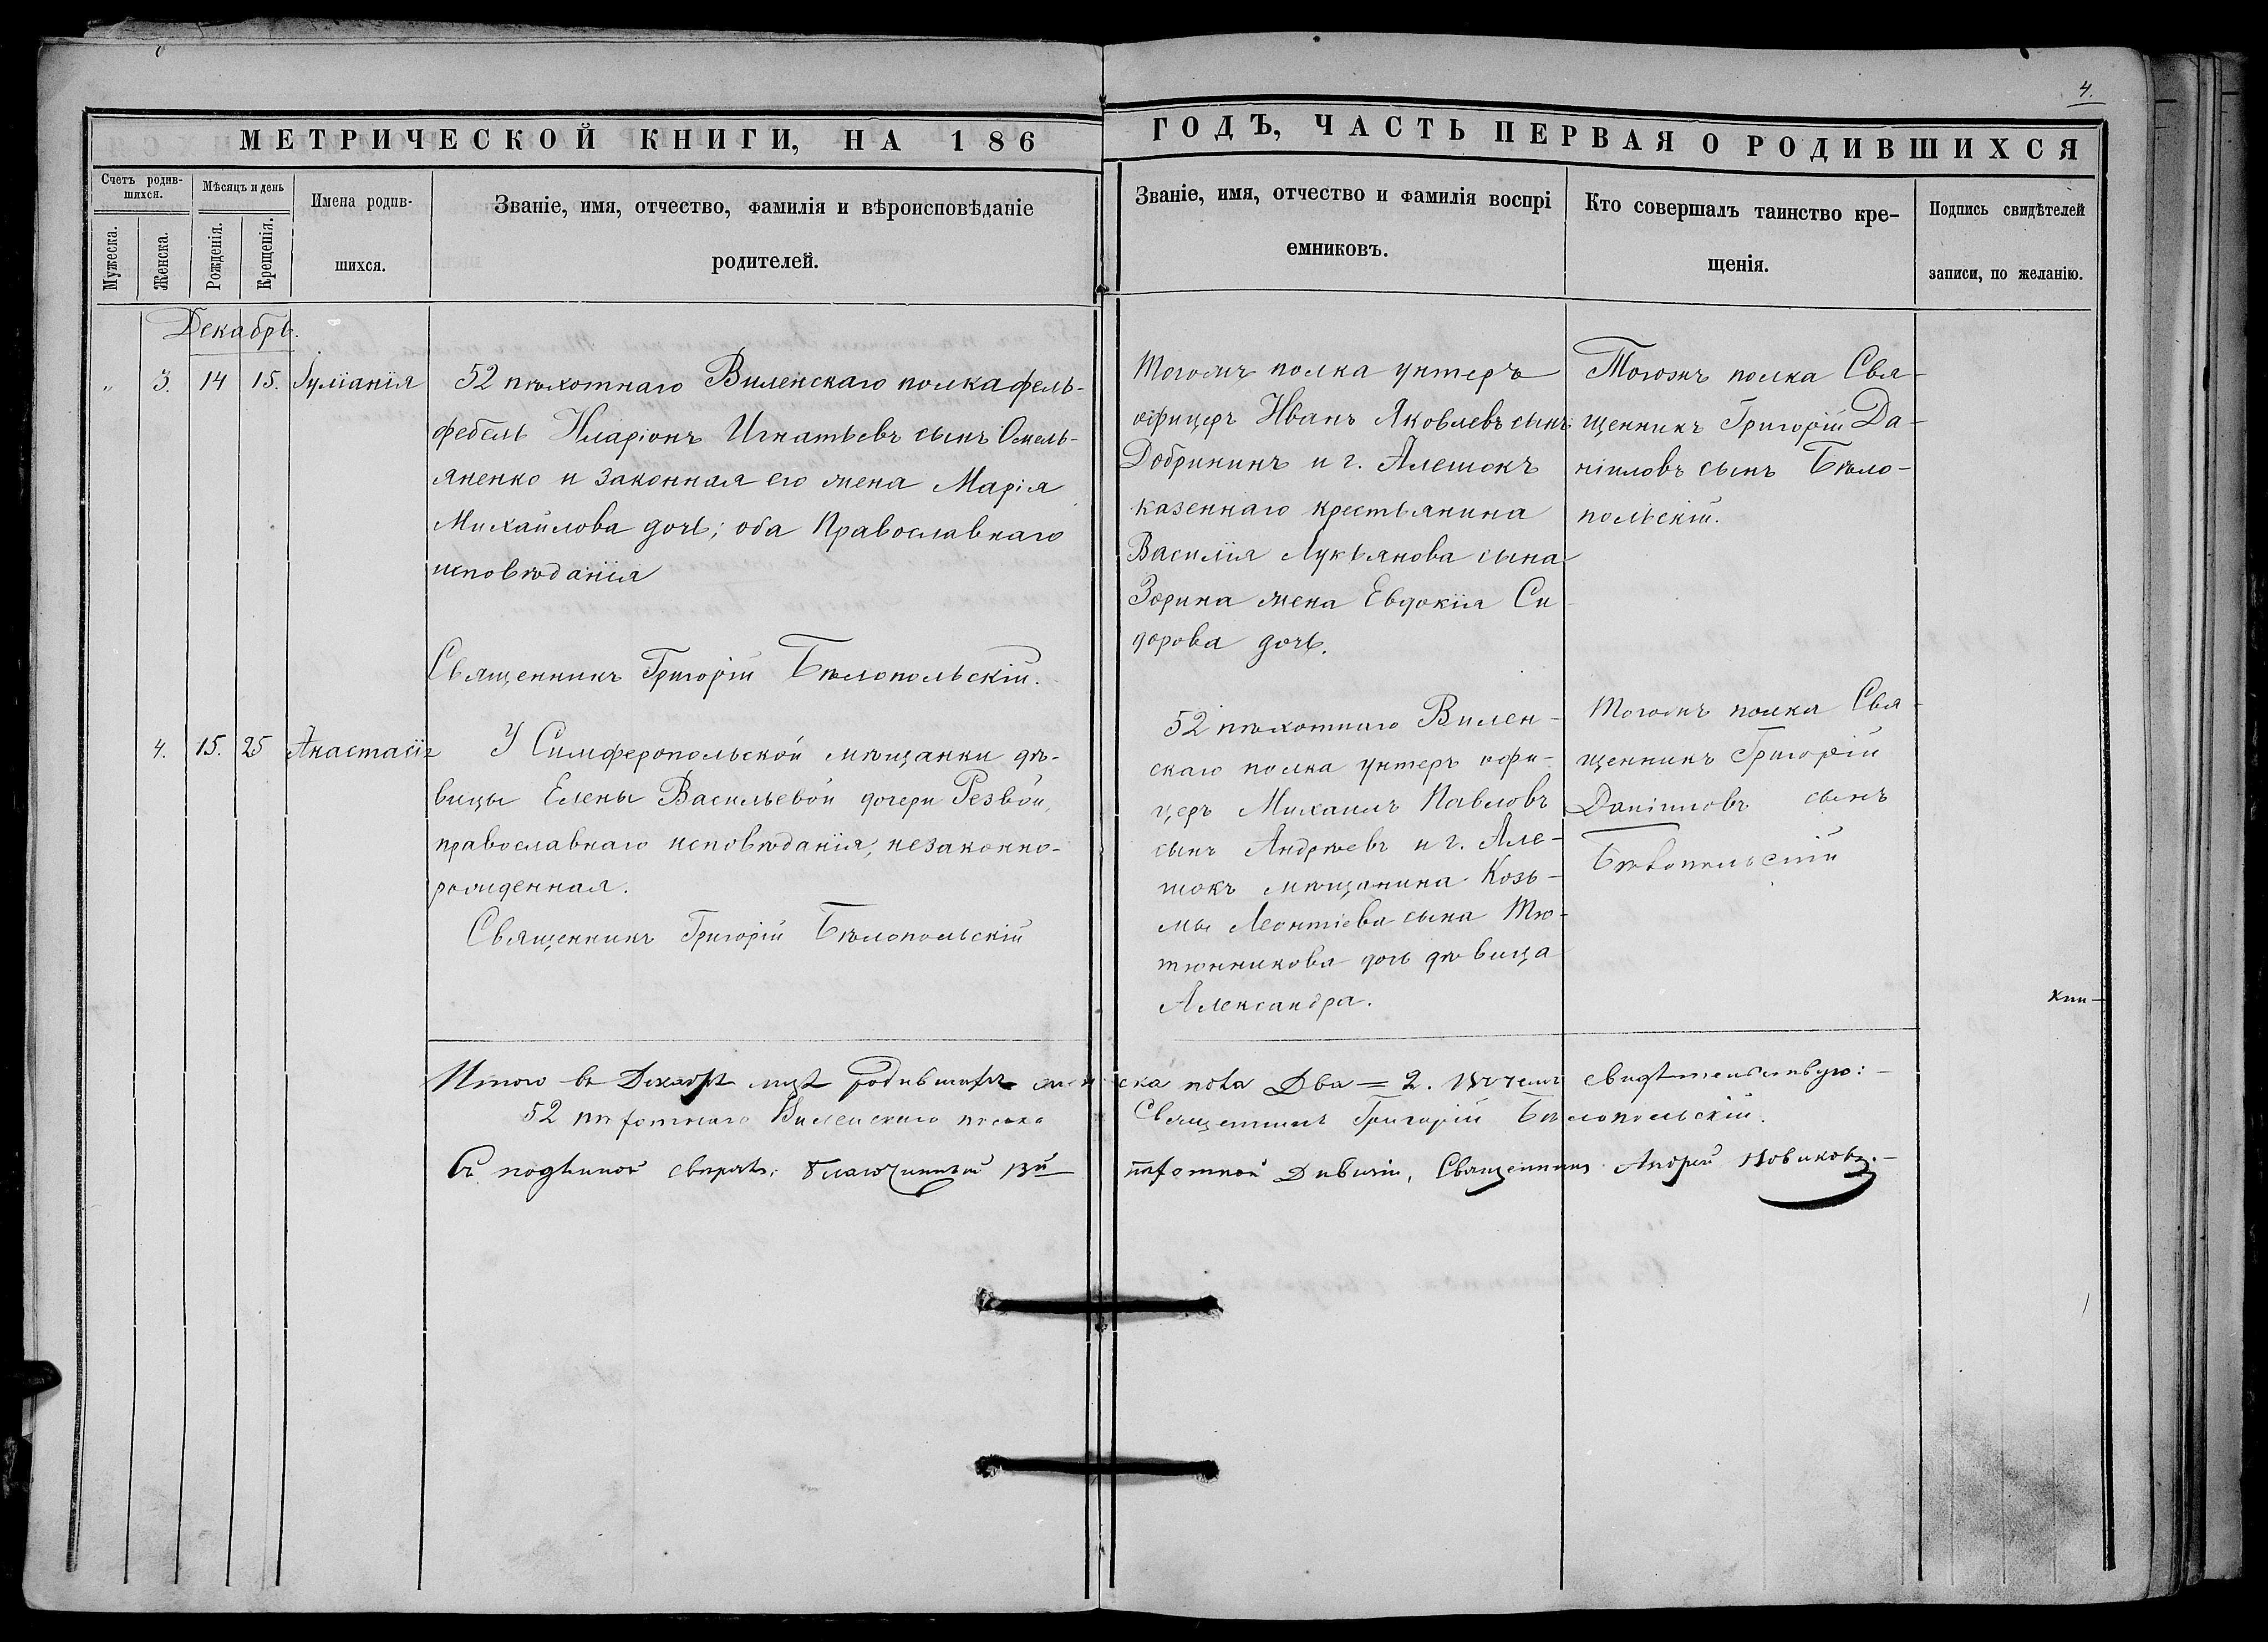 4.
МЕТРИЧЕСКОЙ КНИГИ, НА 186
ГОДЪ, ЧАСТЬ ПЕРВАЯ О РОДИВШИХСЯ
Счетъ родив-
шихся.
Мужеска.
Женска.
Мѣсяцъ и день
Рожденія.
Крещенія.
Имена родив-
шихся.
Званіе, имя, отчество, фамилія и вѣроисповѣданіе
родителей.
Званіе, имя, отчество и фамилія воспрі
емниковъ.
Кто совершалъ таинство кре-
щенія.
Подпись свидѣтелей
записи, по желанію.
Декабрь.
„ 3. 14 15. Іуліанія
52 пѣхотнаго Виленскаго полка фель-
фебель Иларіонъ Игнатьевъ сынъ Омель-
яненко и законная его жена Марія
Михайлова дочь; оба Православнаго
исповѣданія
Священникъ Григорій Бѣлопольскій.
Тогожъ полка унтеръ
офицеръ Иванъ Яковлевъ сынъ
Добрининъ и г. Алешокъ
казеннаго крестьянина
Василія Лукьянова сына
Зорина жена Евдокія Си-
дорова дочь.
Тогожъ полка Свя-
щенникъ Григорій Да-
ніиловъ сынъ Бѣло-
польскій.
4. 15. 25 Анастасія
У Симферопольской мѣщанки дѣ-
вицы Елены Васильевой дочери Резвой,
православнаго исповѣданія, незаконно-
рожденная.
Священникъ Григорій Бѣлопольскій
52 пѣхотнаго Вилен-
скаго полка унтеръ офи-
церъ Михаилъ Павловъ
сынъ Андрѣевъ и г. Але-
шокъ мѣщанина Козь-
мы Леонтіева сына Тю-
тюнникова дочь дѣвица
Александра.
Тогожъ полка Свя-
щенникъ Григорій
Даніиловъ сынъ
Бѣлопольскій
Итого въ Декабрѣ мцѣ родившихся женска пола Два = 2. Въ чемъ свидѣтельствую: –
52 пѣхотнаго Виленскаго полка Священникъ Григорій Бѣлопольскій.
Съ подлиной свѣрялъ: благочинный 13й пѣхотной Дивизіи, Священникъ Андрей Новиковъ. –